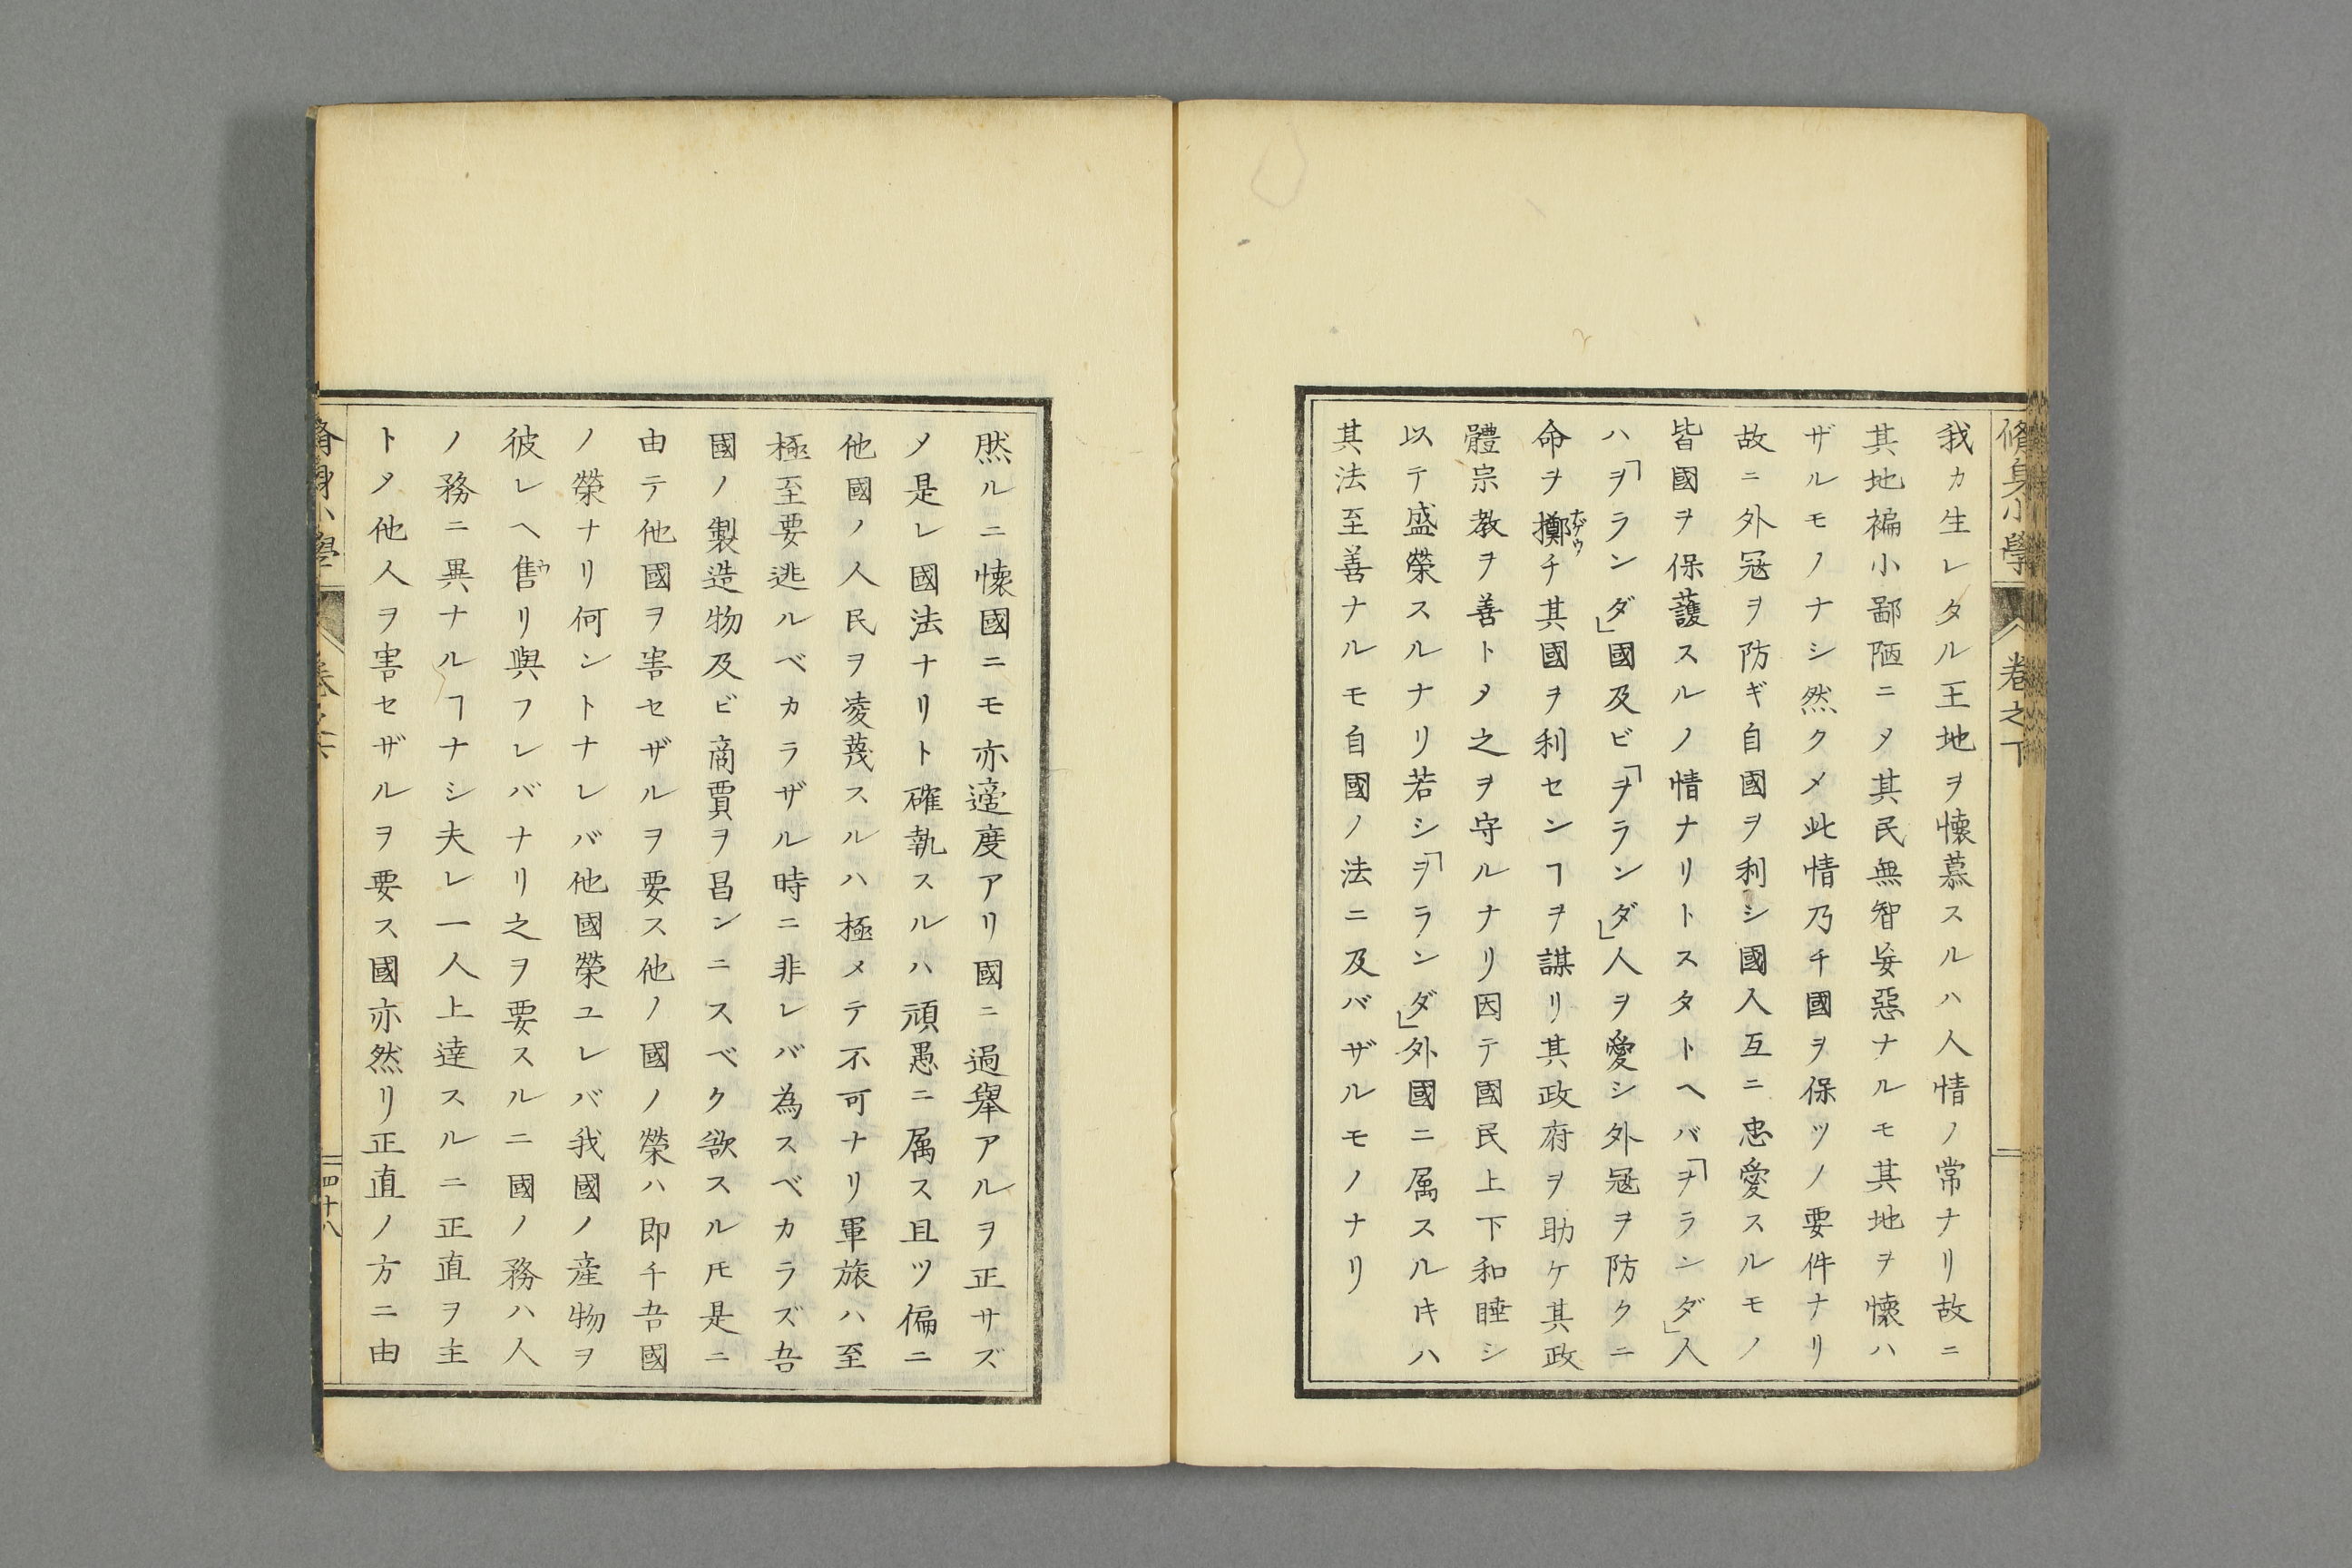 脩身小學
卷之下
我カ生レタル王地ヲ懷慕スルハ人情ノ常ナリ故ニ
其地褊小鄙陋ニメ其民無智妄惡ナルモ其地ヲ懷ハ
ザルモノナシ然クメ此情乃チ國ヲ保ツノ要件ナリ
故ニ外冦ヲ防ギ自國ヲ利シ國人互ニ忠愛スルモノ
皆國ヲ保護スルノ情ナリトスタトヘバ「ヲランダ」人
ハ「ヲランダ」國及ビ「ヲランダ」人ヲ愛シ外冦ヲ防クニ
命ヲ擲チ其國ヲ利センヿヲ謀リ其政府ヲ助ケ其政
ナゲウ
體宗教ヲ善トメ之ヲ守ルナリ因テ國民上下和睡シ
以テ盛榮スルナリ若シ「ヲランダ」外國ニ属スルキハ
其法至善ナルモ自國ノ法ニ及バザルモノナリ
然ルニ懷國ニモ亦適度アリ國ニ過舉アルヲ正サズ
メ是レ國法ナリト確執スルハ頑愚ニ属ス且ツ偏ニ
他國ノ人民ヲ凌蔑スルハ極メテ不可ナリ軍旅ハ至
極至要逃ルベカラザル時ニ非レバ為スベカラズ吾
國ノ製造物及ビ商賈ヲ昌ンニスベク欲スルモ是ニ
由テ他國ヲ害セザルヲ要ス他ノ國ノ榮ハ即チ吾國
ノ榮ナリ何ントナレバ他國榮ユレバ我國ノ産物ヲ
彼レヘ售リ與フレバナリ之ヲ要スルニ國ノ務ハ人
ウ
ノ務ニ異ナルヿナシ夫レ一人上達スルニ正直ヲ主
トメ他人ヲ害セザルヲ要ス國亦然リ正直ノ方ニ由
脩身小學
四十八